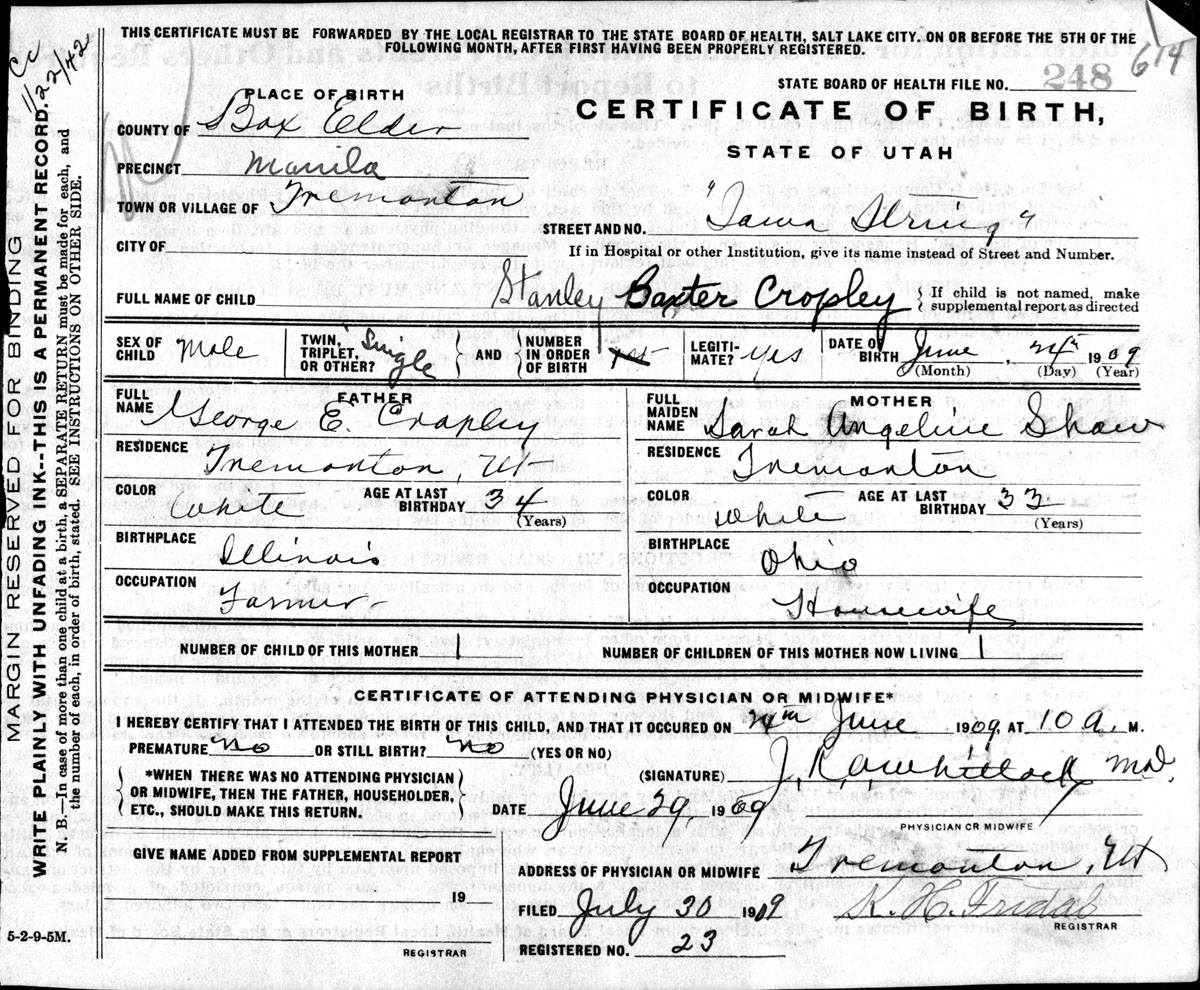 THIS CERTIFICATE MUST BE FORWARDED BY THE LOCAL REGISTRAR TO THE STATE BOARD OF HEALTH, SALT LAKE CITY, ON OR BEFORE THE 5TH OF THE
FOLLOWING MONTH, AFTER FIRST HAVING BEEN PROPERLY REGISTERED.
614
STATE BOARD OF HEALTH FILE NO. 248
MARGIN RESERVED FOR BINDING
WRITE PLAINLY WITH UNFADING INK--THIS IS A PERMANENT RECORD.
N. B.—In case of more than one child at a birth, a SEPARATE RETURN must be made for each, and
the number of each, in order of birth, stated. SEE INSTRUCTIONS ON OTHER SIDE.
PLACE OF BIRTH
CERTIFICATE OF BIRTH,
STATE OF UTAH
COUNTY OF Box Elder
PRECINCT Manila
TOWN OR VILLAGE OF Tremonton
STREET AND NO. "Iowa String"
CITY OF
If in Hospital or other Institution, give its name instead of Street and Number.
FULL NAME OF CHILD Stanley Baxter Cropley
If child is not named, make
supplemental report as directed
SEX OF CHILD Male
TWIN, TRIPLET, OR OTHER? Single
AND NUMBER IN ORDER OF BIRTH 1st
LEGITIMATE? Yes
DATE OF BIRTH June, 24th 1909
(Month) (Day) (Year)
FATHER
FULL NAME George E. Cropley
RESIDENCE Tremonton, Ut
COLOR White AGE AT LAST BIRTHDAY 34 (Years)
BIRTHPLACE Illinois
OCCUPATION Farmer
MOTHER
FULL MAIDEN NAME Sarah Angeline Shaw
RESIDENCE Tremonton
COLOR White AGE AT LAST BIRTHDAY 33 (Years)
BIRTHPLACE Ohio
OCCUPATION Housewife
NUMBER OF CHILD OF THIS MOTHER 1 NUMBER OF CHILDREN OF THIS MOTHER NOW LIVING 1
CERTIFICATE OF ATTENDING PHYSICIAN OR MIDWIFE*
I HEREBY CERTIFY THAT I ATTENDED THE BIRTH OF THIS CHILD, AND THAT IT OCCURED ON June 1909, AT 10 a. M.
PREMATURE No OR STILL BIRTH? No (YES OR NO)
*WHEN THERE WAS NO ATTENDING PHYSICIAN
OR MIDWIFE, THEN THE FATHER, HOUSEHOLDER,
ETC., SHOULD MAKE THIS RETURN.
(SIGNATURE) Whitlock MD.
DATE June 29, 1909
PHYSICIAN OR MIDWIFE
GIVE NAME ADDED FROM SUPPLEMENTAL REPORT
19
REGISTRAR
ADDRESS OF PHYSICIAN OR MIDWIFE Tremonton, Ut
FILED July 30 1909 K. H. Fridal
REGISTRAR
REGISTERED NO. 23
5-2-9-5M.